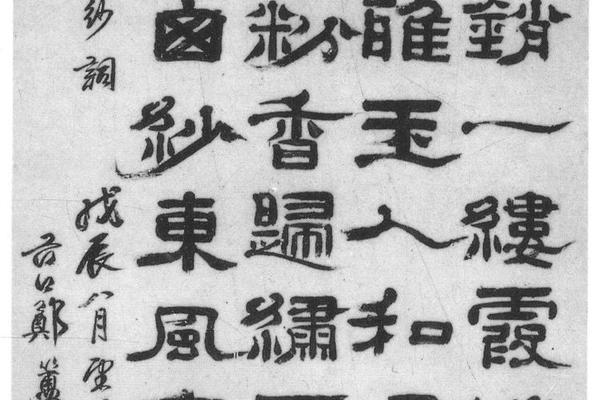 銷一縷霞
雅玉人和
粉香歸繡
囪紗東風
紗詞
戊辰八月望
谷口鄭簠